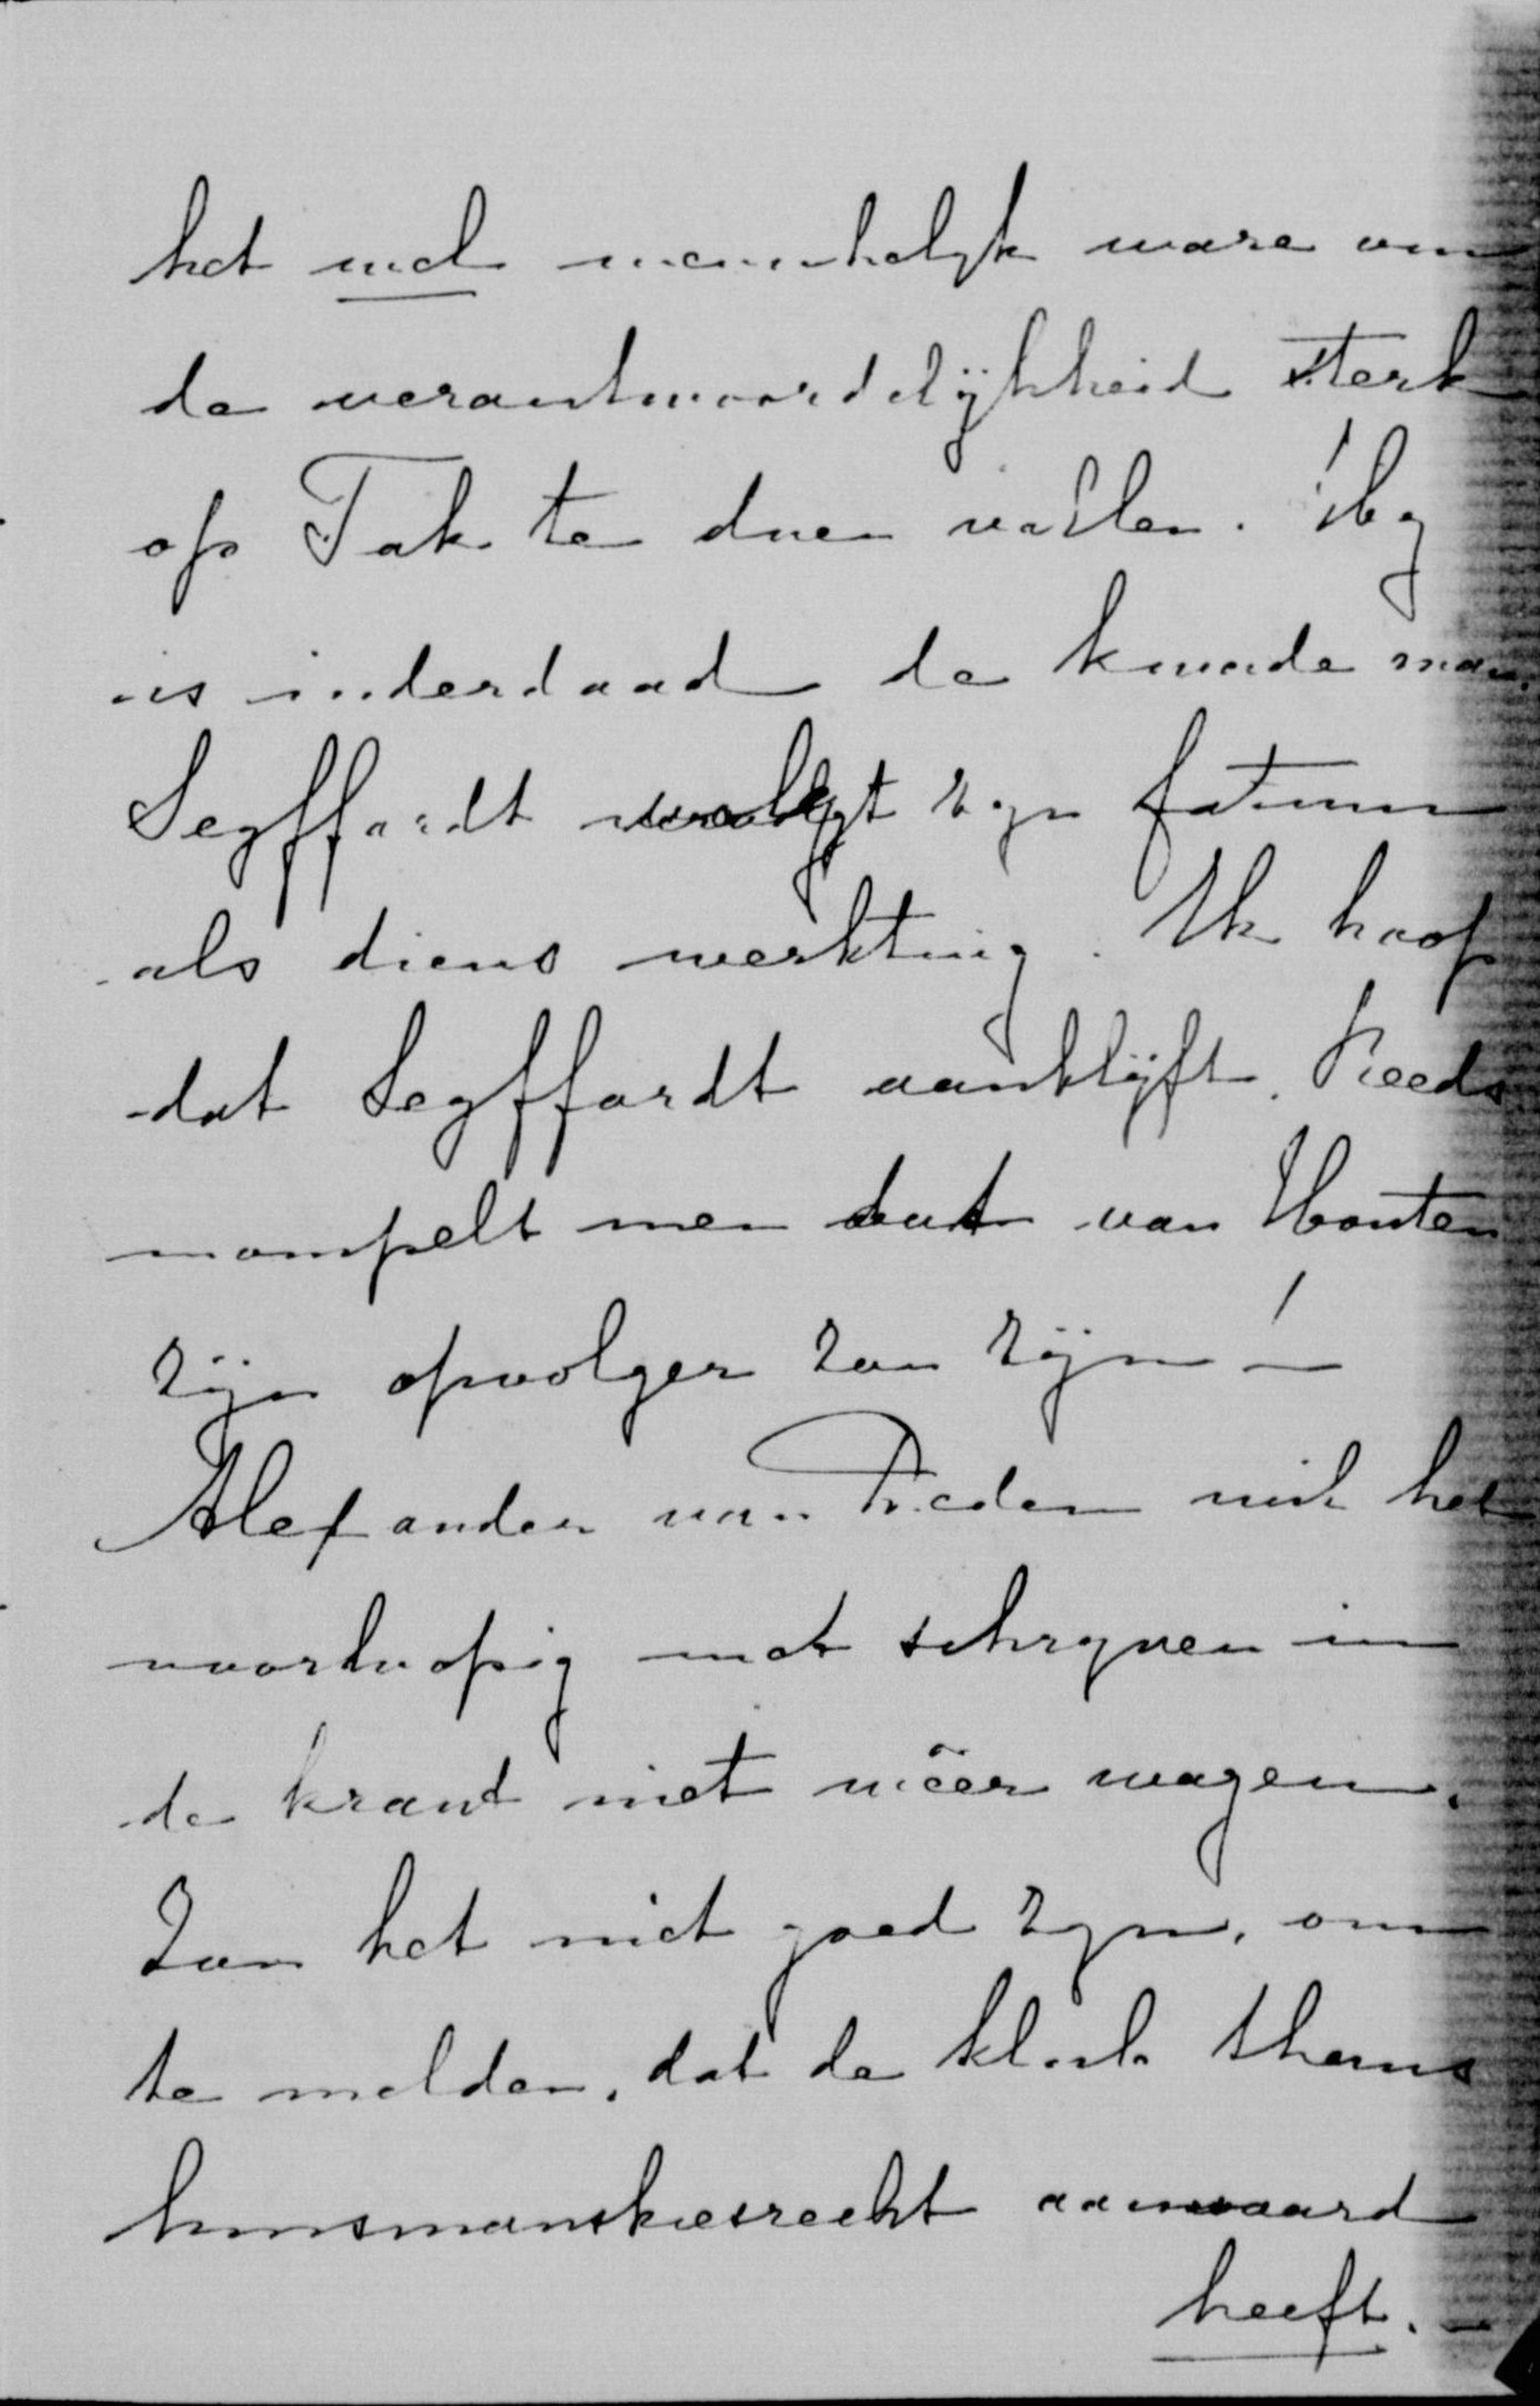 het niet wenschelijk ware om
de verantwoordelijkheid sterk
op Tak te doen vallen. Hij
is inderdaad de kwade man.
Seyffardt volgt zijn fatum
als diens werktuig. Ik hoop
dat Seyffardt aanblijft. Reeds
mompelt men dat van Houten
zijn opvolger zou zijn!—
Alexander van Reden wil het
voorloopig met schrijven in
de krant niet méér wagen.
Zou het niet goed zijn, om
te melden, dat de club thans
huismanskiesrecht aanvaard
heeft.—